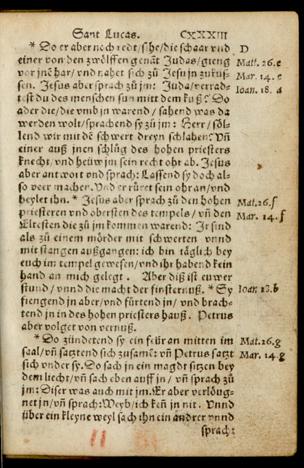 Sant Lucas. CXXXIII
* Do er aber noch redt / sihe / die schaar vnd D
einer von den zwölffen genãt Judas / gieng Mat. 26.e
vor jnẽ har / vnd nahet sich zů Jesu jn zuküs- Mar. 14.e
sen. Jesus aber sprach zů jm: Juda / verrad- Ioan. 18.a
test du des menschen sun mitt dem kuß? Do
aber die / die vmb jn warend / sahend was da
werden wolt / sprachend sy zů jm: Herr / söl-
lend wir mit dẽ schwert dreyn schlahen? Vñ
einer auß jnen schlůg des hohen priesters
knecht / vnd heüw jm sein recht ohr ab. Jesus
aber antwort vnd sprach: Lassend sy doch al-
so veer machen. Vnd er rüret sein ohr an / vnd
heylet jhn. * Jesus aber sprach zů den hohen Mat. 26.f
priesteren vnd obersten des tempels / vñ den Mar. 14.f
Eltesten die zů jm kommen warend: Jr sind
als zů einem mörder mit schwerten vnnd
mit stangen außgangen: ich bin täglich bey
euch im tempel gewesen / vnd jhr habend kein
hand an mich gelegt. Aber diß ist euwer
stund / vnnd die macht der finsternuß. * Sy Ioan. 18.b
fiengend jn aber / vnd fürtend jn / vnd brach-
tend jn in des hohen priesters hauß. Petrus
aber volget von vernuß.
* Do zündetend sy ein feür an mitten im Mat. 26.g
saal / vñ satztend sich zusamẽ: vñ Petrus satzt Mar. 14.g
sich vnder sy. Do sach jn ein magdt sitzen bey
dem liecht / vñ sach eben auff jn / vñ sprach zů
jm: Diser was auch mit jm. Er aber verlöug-
net jn / vñ sprach: Weyb / ich keñ jn nit. Vnnd
über ein kleyne weyl sach jhn ein andrer vnnd
sprach: